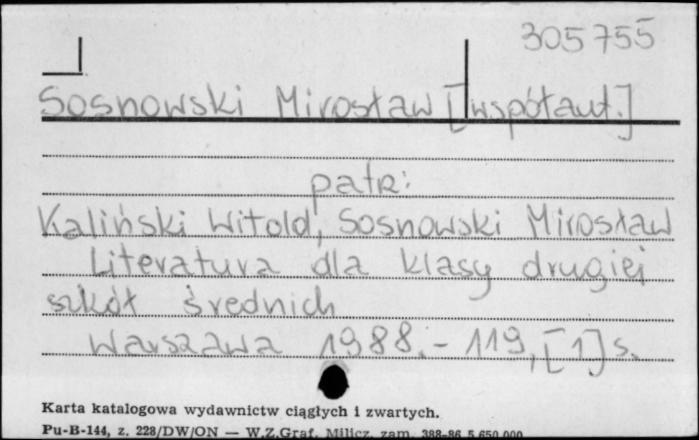 305755
Sosnowski Mirosław [współaut.]
patrz:
Kaliński Witold, Sosnowski Mirosław
Literatura dla klasy drugiej
szkół średnich
Warszawa 1988. - 119, [1] s.
Karta katalogowa wydawnictw ciągłych i zwartych.
Pu-B-144, z. 228/DW/ON — W.Z.Graf. Milicz, zam. 388-86 5.650.000